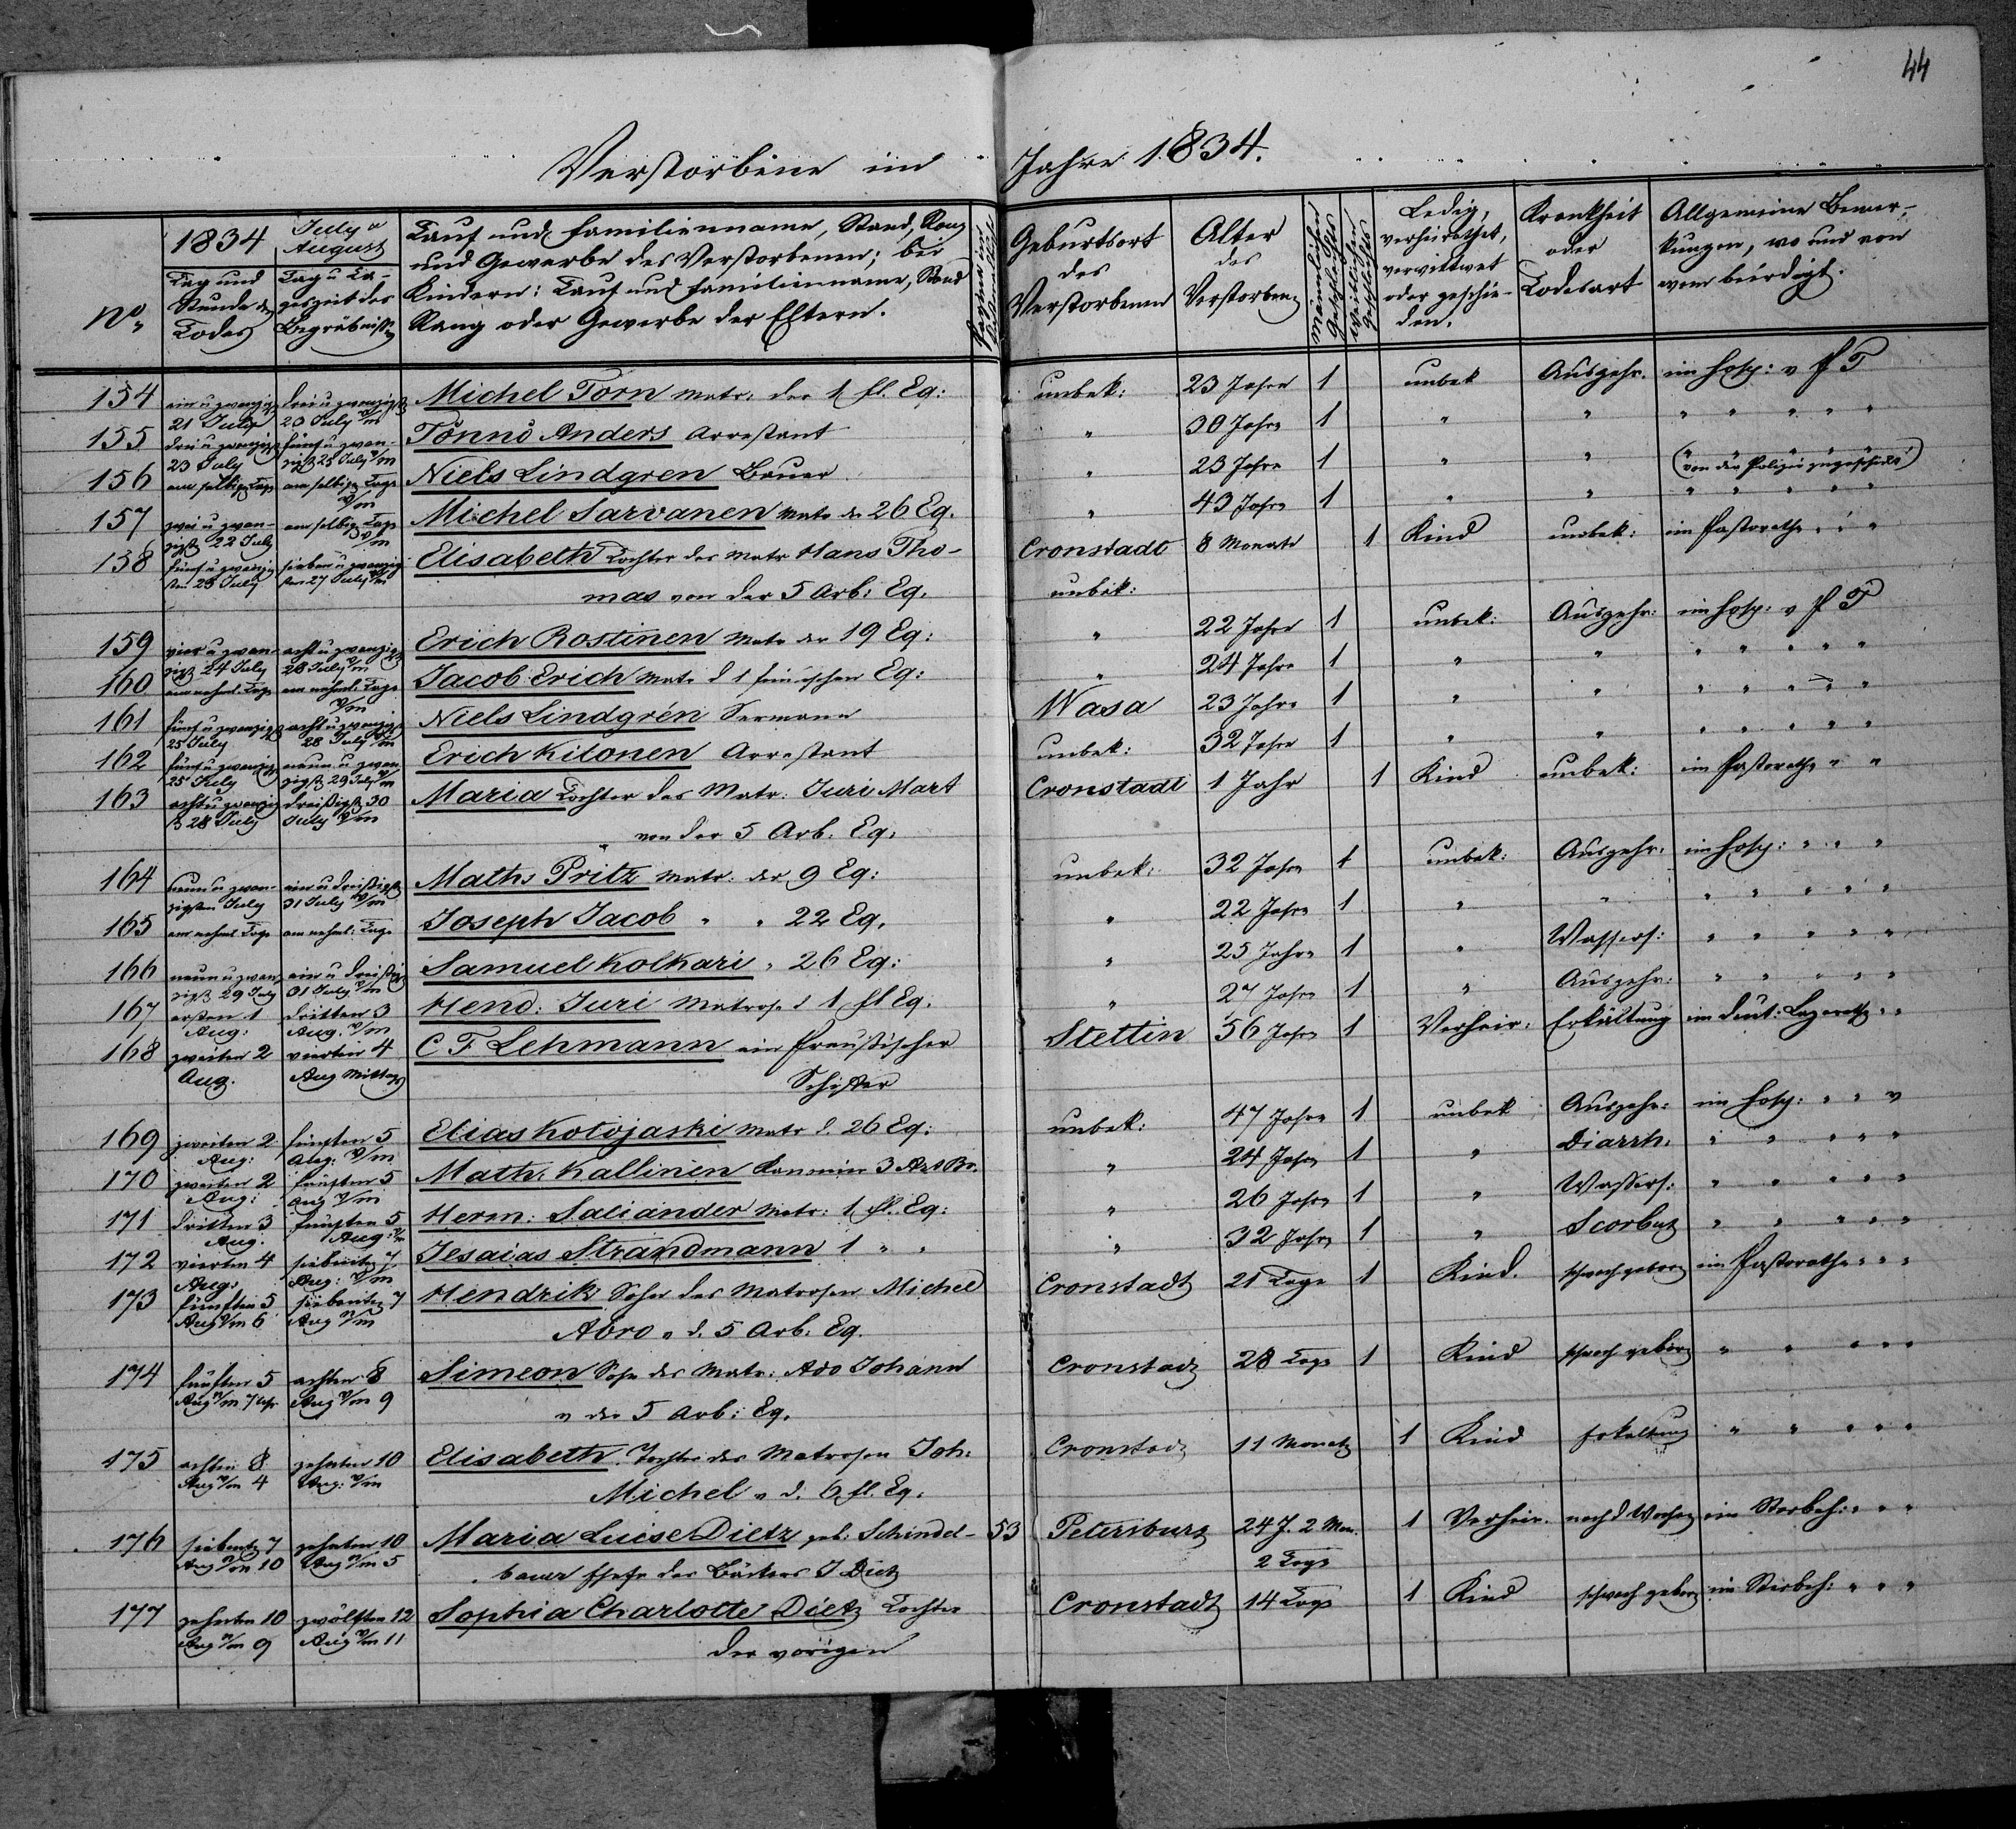 44
Verstorbene im Jahre 1834.
No. | 1834 Tag und Stunde des Todes | July u August Tag u Tageszeit des Begräbnisses | Tauf und Familienname, Stand, Rang und Gewerbe des Verstorbenen; bei Kindern: Tauf und Familienname, Stand Rang oder Gewerbe der Eltern. | Geburtsort des Verstorbenen | Alter des Verstorben | Männlichen Geschlechtes | Weiblichen Geschlechtes | Ledig, verheirathet, verwittwet oder geschieden. | Krankheit oder Todesart | Allgemeine Bemerkungen, wo und von wem beerdigt.
154 ein u zwanzigst 21 July drei u zwanzigst 23 July v/m Michel Torn Matr: der 1 fl. Eq: unbek: 23 Jahre 1 unbek Auszehr. im Hosp: v P T
155 drei u zwanzigst 23 July fünf u zwanzigst 25 July v/m Tönnö Anders Arrestant " 30 Jahre 1 " " " " " " "
156 am selbig Tage am selbig Tage v/m Niels Lindgren Bauer " 23 Jahre 1 " " (von der Polizei zugeschickt)
157 zwei u zwanzigst 22 July am selbig Tage v/m Michel Sarvanen Matr der 26 Eq. " 43 Jahre 1 " " " " " " "
158 fünf u zwanzigsten 25 July sieben u zwanzigsten 27 July Elisabeth Tochter des Matr Hans Tho- Cronstadt 8 Monate 1 Kind unbek: im Pastorathe " "
mas von der 5 Arb: Eq. unbek:
159 vier u zwanzigst 24 July acht u zwanzigst 28 July v/m Erich Rostinen Matr der 19 Eq: " 22 Jahre 1 unbek: Auszehr: im Hosp: v P T
160 am nehml. Tage am nehml. Tage v/m Jacob Erich Matr d 1 finnischen Eq: " 24 Jahre 1 " " " " " " "
161 fünf u zwanzigst 25 July acht u zwanzigst 28 July v/m Niels Lindgrén Seemann Wasa 23 Jahre 1 " " " " " " "
162 fünf u zwanzigst 25 July neun u zwanzigst 29 July v/m Erich Kitonen Arrestant unbek: 32 Jahre 1 " " " " " " "
163 acht u zwanzigst 28 July dreißigst 30 July v/m Maria Tochter des Matr: Juri Mart Cronstadt 1 Jahr 1 Kind unbek: im Pastorathe " "
von der 5 Arb. Eq.
164 neun u zwanzigsten July ein u dreißigst 31 July v/m Maths Pritz Matr: der 9 Eq: unbek: 32 Jahre 1 unbek: Auszehr. im Hosp: " " "
165 am nehml Tage am nehml: Tage Joseph Jacob " " 22 Eq. " 22 Jahre 1 " " " " " " "
166 neun u zwanzigst 29 July ein u dreißig 31 July v/m Samuel Kolkari " 26 Eq: " 25 Jahre 1 " Wassers: " " " " "
167 ersten 1 Aug: dritten 3 Aug. v/m Hend: Juri Matrose d 1 fl Eq. " 27 Jahre 1 " Auszehr: " " " " "
168 zweiten 2 Aug. vierten 4 Aug Mittags C F Lehmann ein Preußischer Stettin 56 Jahre 1 Verheir: Erkältung im deut: Lazareth " "
Schiffer
169 zweiten 2 Aug: fünften 5 Aug: v/m Elias Kotojaski Matr d. 26 Eq: unbek: 47 Jahre 1 unbek Auszehr: im Hosp: " " v
170 zweiten 2 Aug: fünften 5 Aug v/m Math: Kallinen Kanonier 3 Art Br. " 24 Jahre 1 " Diarrh. " " " " "
171 dritten 3 Aug. fünften 5 Aug: Herm: Saliander Matr: 1 fl. Eq: " 26 Jahre 1 " Wassers: " " " " "
172 vierten 4 Aug: siebenten 7 Aug: v/m Jesaias Strandmann 1 " " " 32 Jahre 1 " Scorbut " " " " "
173 fünften 5 Aug v/m 6 siebenten 7 Aug n/m Hendrik Sohn des Matrosen Michel Cronstadt 21 Tage 1 Kind. schwach geboren im Pastorathe " " "
Abro v d. 5 Arb. Eq.
174 fünften 5 Aug n/m 7 Uhr achten 8 Aug n/m 9 Simeon Sohn des Matr: Ado Johann Cronstadt 28 Tage 1 Kind schwach geboren " " " " "
v der 5 Arb: Eq.
175 achten 8 Aug n/m 4 zehnten 10 Aug: v/m Elisabeth Tochter des Matrosen Joh: Cronstadt 11 Monate 1 Kind Erkaltung " " " " "
Michel v d. 6 fl. Eq.
176 siebenten 7 Aug n/m 10 zehnten 10 Aug n/m 5 Maria Luise Dietz geb: Schindel- 53 Petersburg 24 J. 2 Mon. 1 Verheir. nach d Wochen im Sterbeh: " " "
bauer Ehefr des Bäckers J Dietz 2 Tage
177 zehnten 10 Aug n/m 9 zwölften 12 Aug v/m 11 Sophia Charlotte Dietz Tochter Cronstadt 14 Tage 1 Kind schwach geboren im Sterbeh: " " "
der vorigen